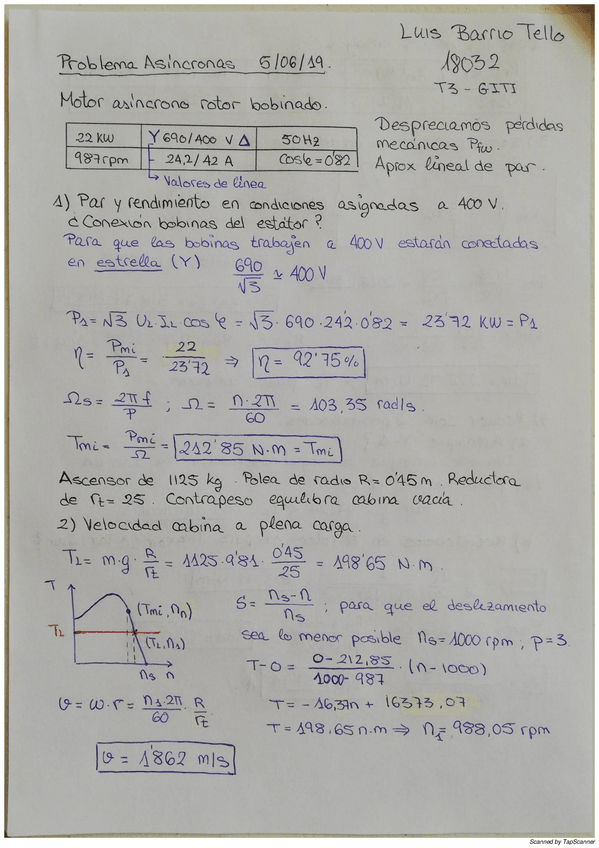 Luis Barrio Tello
Problema Asíncronas 5/06/19.
18032
T3 - GITI
Motor asíncrono rotor bobinado.
22 KW Y 690/400 V Δ 50Hz
987rpm 24,2/42 A cosφ = 0'82
Valores de línea
Despreciamos pérdidas
mecánicas Pfw.
Aprox lineal de par.
1) Par y rendimiento en condiciones asignadas a 400 V.
¿Conexión bobinas del estátor?
Para que las bobinas trabajen a 400V estarán conectadas
en estrella (Y) 690/√3 ≃ 400 V
P1 = √3 UL·IL·cos φ = √3·690·24'2·0'82 = 23'72 KW = P1
η = Pmi/P1 = 22/23'72 ⇒ η = 92'75%
Ωs = 2πf/P ; Ω = n·2π/60 = 103,35 rad/s.
Tmi = Pmi/Ω = 212'85 N·m = Tmi
Ascensor de 1125 kg. Polea de radio R = 0'45 m. Reductora
de rt = 25. Contrapeso equilibra cabina vacía.
2) Velocidad cabina a plena carga.
TL = m·g·R/rt = 1125·9'81·0'45/25 = 198'65 N·m.
T
(Tmi, nn)
TL
(TL, n1)
ns n
S = ns-n/ns ; para que el deslizamiento
sea lo menor posible ns = 1000 rpm ; p = 3
T-0 = 0-212,85/1000-987 · (n-1000)
T = -16,37n + 16373,07
T = 198,65 n.m ⇒ n1 = 988,05 rpm
v = ω·r = n1·2π/60 R/rt
v = 1'862 m/s
Scanned by TapScanner